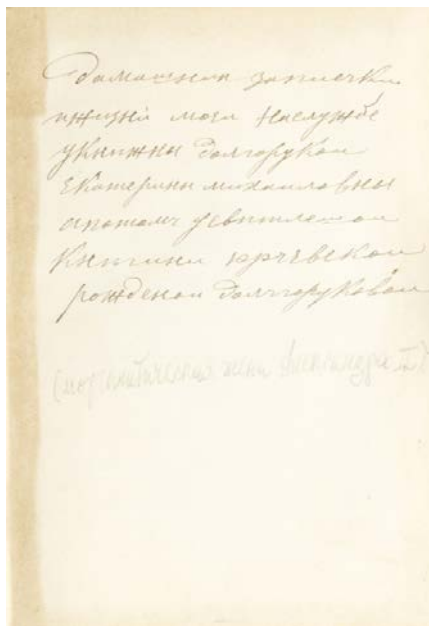 Домашнии записочки
ижизни моеи наслужбе
укнижны Долгорукои
Екатерины михаиловны
апотомъ
Книгини юрьевскои
рожденои Долгоруковои
(морганатическая жена Александра II)